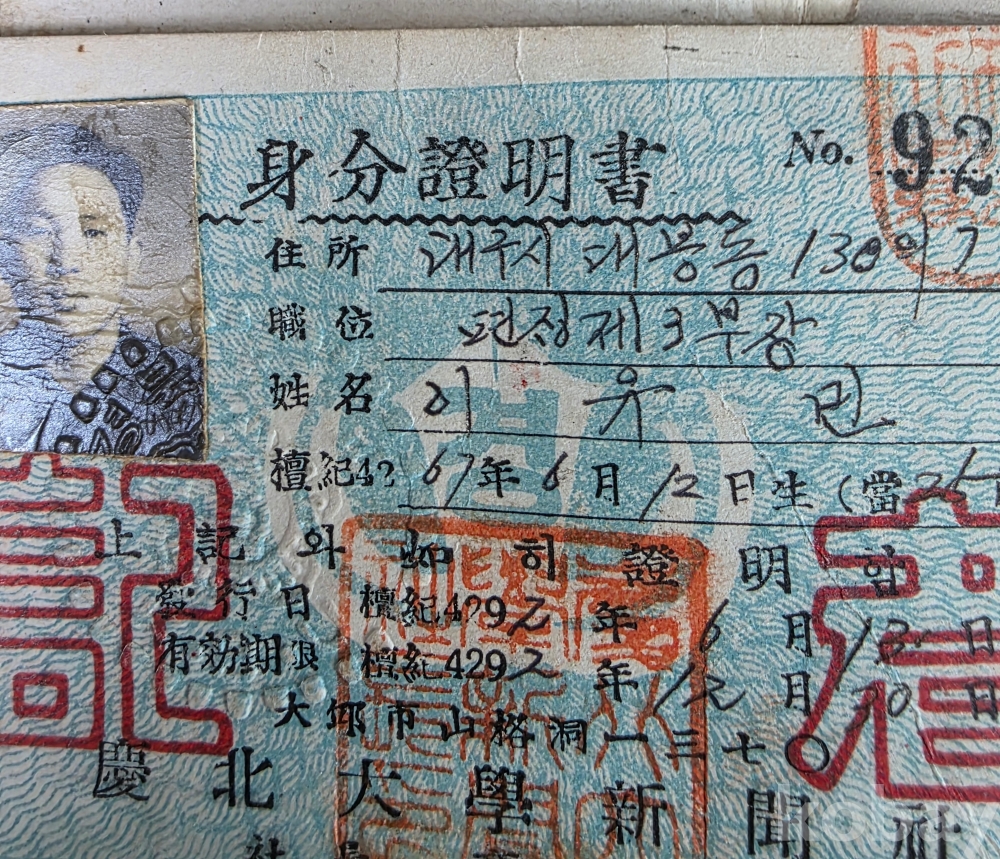 身分證明書 No. 92
住所 대구시 대봉동 130의 7
職位 편정제3부장
姓名 이 유 민
檀紀42 67年 6月 12日生 (當
上記와 如히 證明함
發行日 檀紀4292年 6月 13日
有効期限 檀紀4292年 12月 30日
大邱市山格洞一三七〇
慶北大學新聞社
社長